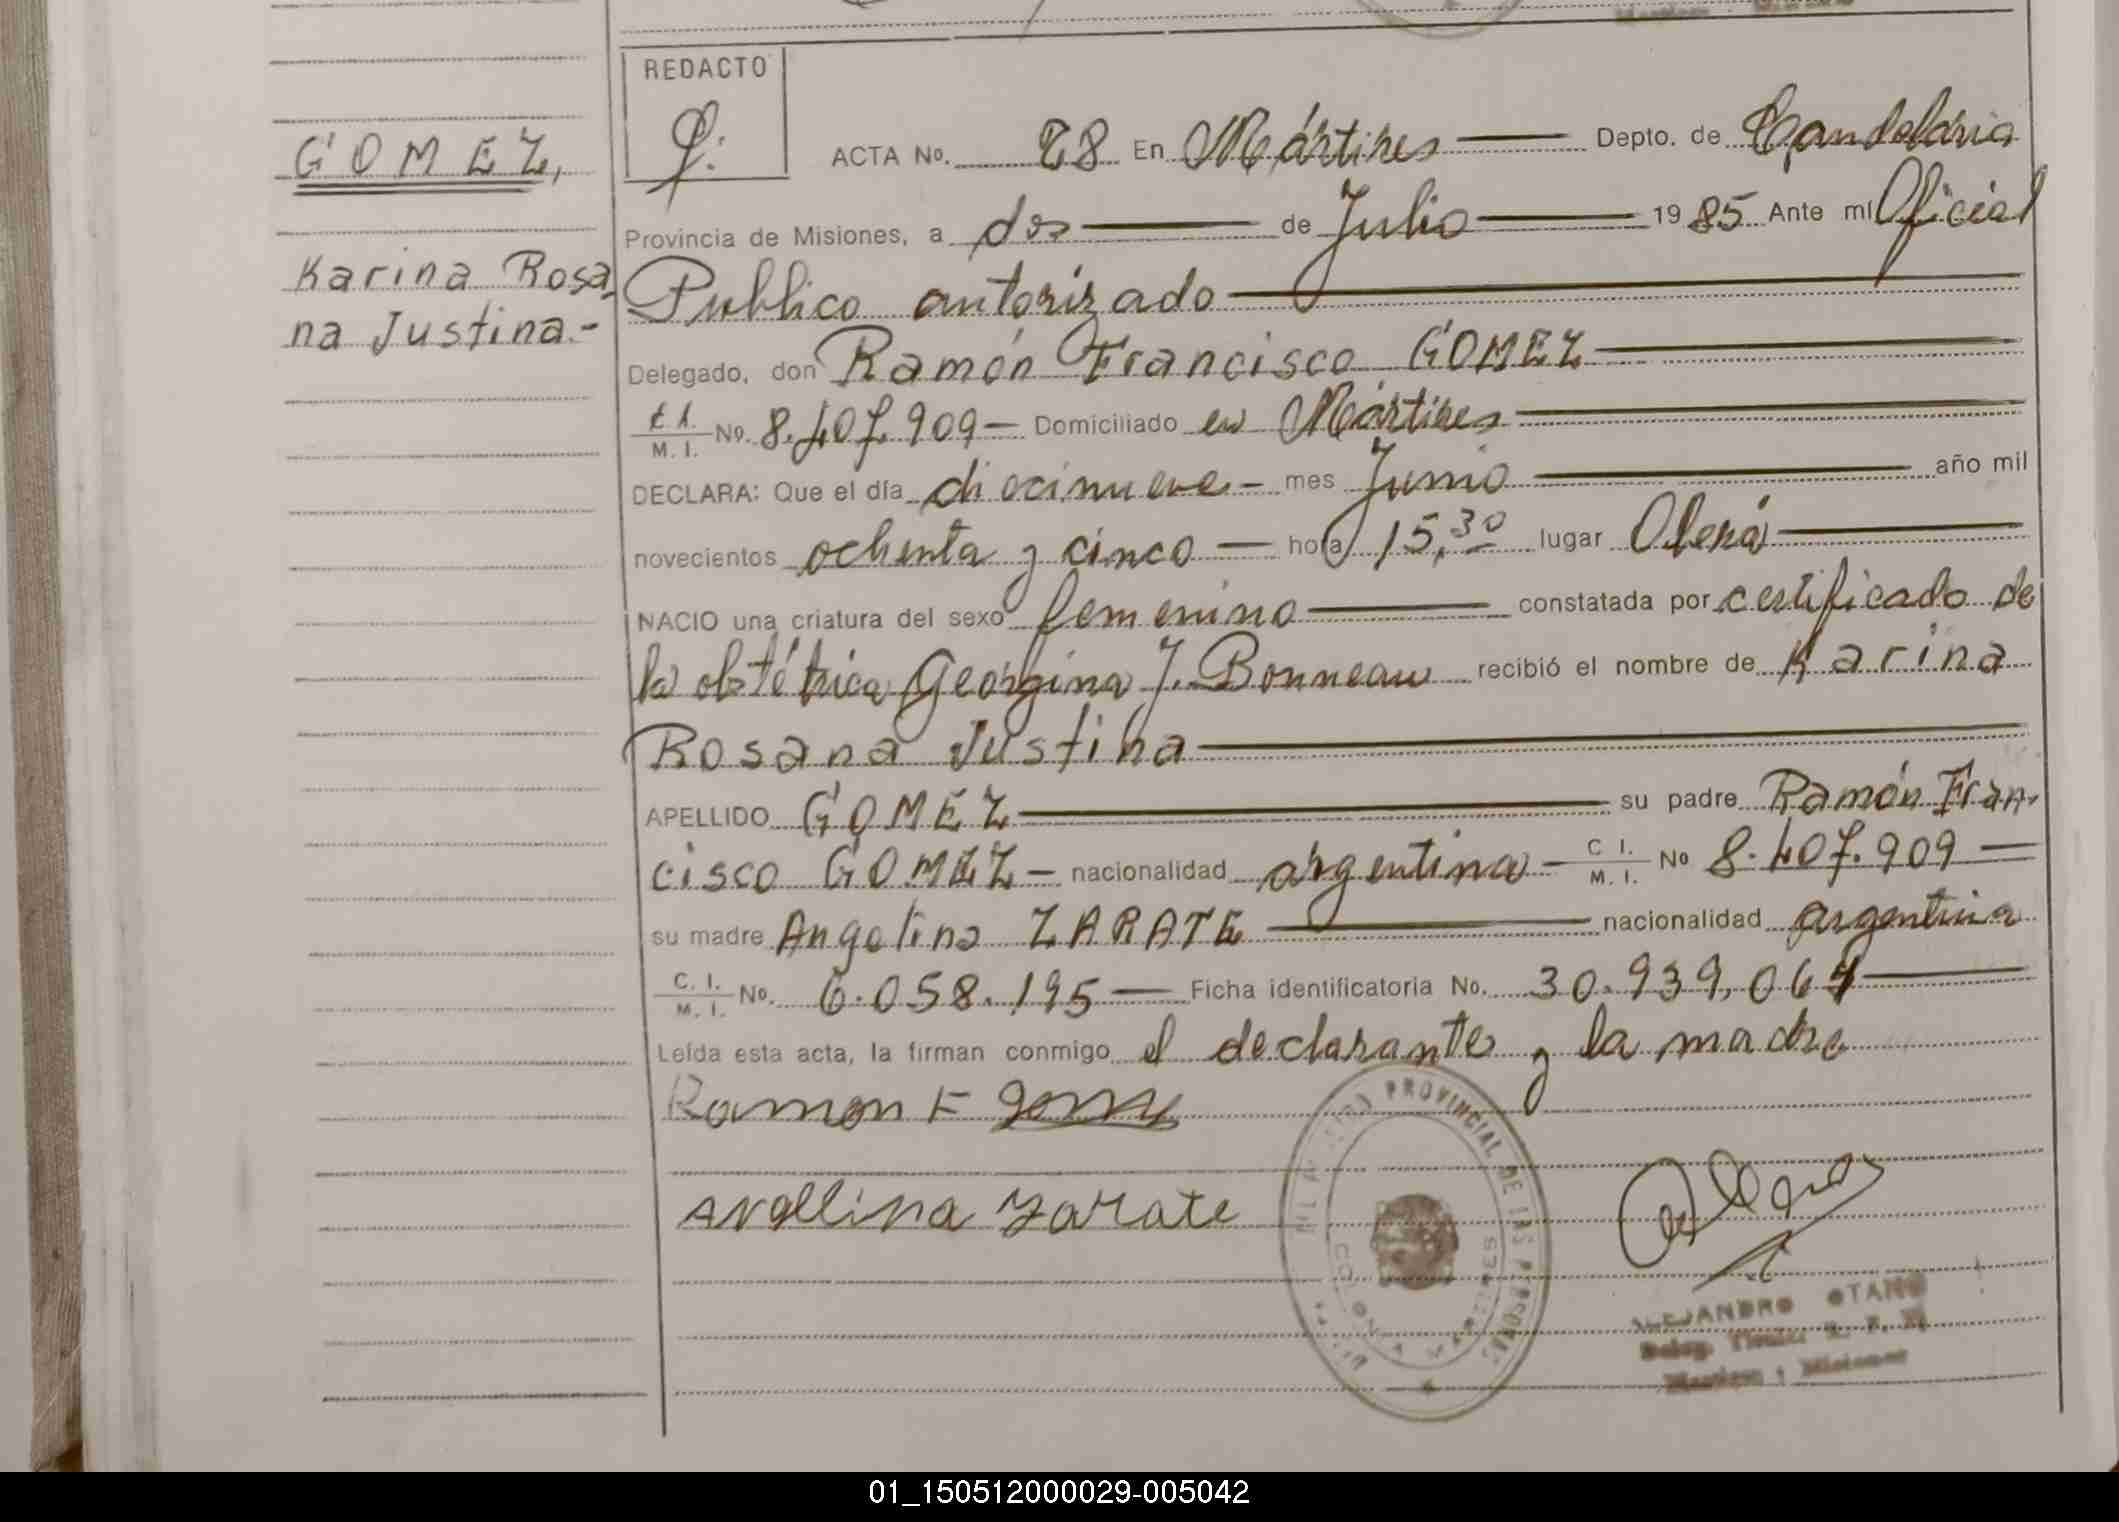 REDACTO
GOMEZ,
ACTA No. 28 En Mártires Depto. de Candelaria
Provincia de Misiones, a dos de Julio 1985 Ante mí Oficial
Karina Rosa
Publico autorizado
na Justina.-
Delegado, don Ramón Francisco GOMEZ
C.I. M.I. No. 8.407.909 Domiciliado en Mártires
DECLARA: Que el día diecinueve - mes Junio año mil
novecientos ochenta y cinco hora 15,30 lugar Oberá
NACIO una criatura del sexo femenino constatada por certificado de
la obstétrica Georgina J. Bonneau recibió el nombre de Karina
Rosana Justina
APELLIDO GOMEZ su padre Ramón Fran-
cisco GOMEZ - nacionalidad argentina - C I. M. I. No 8.407.909
su madre Angelina ZARATE nacionalidad argentina
C. I. M. I. No. 6.058.195 Ficha identificatoria No. 30.939,064
Leída esta acta, la firman conmigo el declarante y la madre
Ramon F Gomez
PROVINCIAL DE LAS PERSONAS
Avellina Zarate
ALEJANDRO OTAÑO
01_150512000029-005042